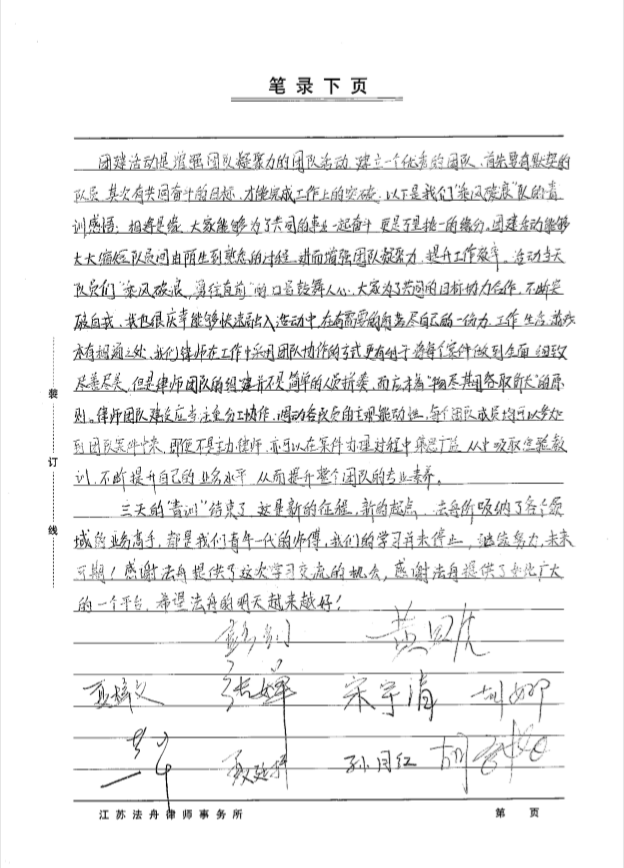 笔录下页
团建活动是增强团队凝聚力的团队活动，建立一个优秀的团队，首先要有默契的
队员，其次有共同奋斗的目标，才能完成工作上的突破。以下是我们“乘风破浪”队的青
训感悟：相遇是缘，大家能够为了共同的事业一起奋斗，更是万里挑一的缘分。团建活动能够
大大缩短队员间由陌生到熟悉的过程，进而增强团队凝聚力，提升工作效率。活动当天
队员们“乘风破浪，勇往直前”的口号鼓舞人心，大家为了共同的目标协力合作，不断突
破自我，我也很庆幸能够快速融入活动中，在有需要的时候尽自己的一份力。工作、生活、游戏
亦有相通之处，我们律师在工作中采用团队协作的方式更有利于将每个案件做到全面、细致、
尽善尽美，但是律师团队的组建并不是简单的人员拼凑，而应本着“物尽其用各取所长”的原
则。律师团队建设应当注重分工协作，调动各成员的主观能动性，每个团队成员均可以参加
到团队案件中来，即便不是主办律师，亦可以在案件办理过程中集思广益，从中吸取经验教
训，不断提升自己的业务水平，从而提升整个团队的专业素养。
三天的“青训”结束了，这是新的征程，新的起点，法舟所吸纳了各个领
域的业务高手，都是我们青年一代的师傅，我们的学习并未停止，继续努力，未来
可期！感谢法舟提供了这次学习交流的机会，感谢法舟提供了如此广大
的一个平台，希望法舟的明天越来越好！
张婵 宋宇清 胡娜
孙月红 胡
装
订
线
江苏法舟律师事务所
第 页